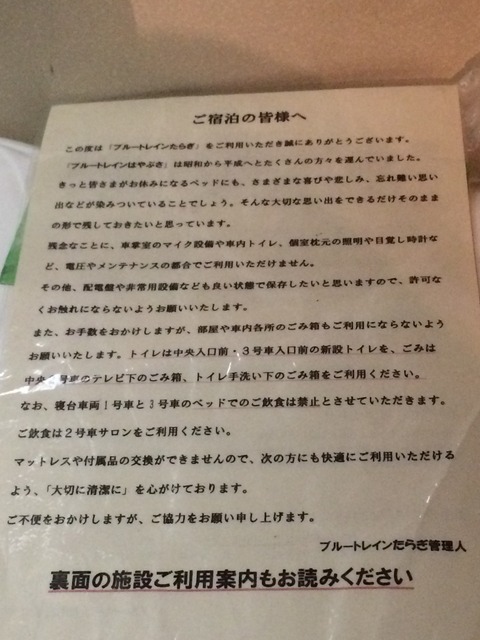 ご宿泊の皆様へ
この度は「ブルートレインたらぎ」をご利用いただき誠にありがとうございます。
「ブルートレインはやぶさ」は昭和から平成へとたくさんの方々を運んでいました。
きっと皆さまがお休みになるベッドにも、さまざまな喜びや悲しみ、忘れ難い思い
出などが染みついていることでしょう。そんな大切な思い出をできるだけそのまま
の形で残しておきたいと思っています。
残念なことに、車掌室のマイク設備や車内トイレ、個室枕元の照明や目覚し時計な
ど、電圧やメンテナンスの都合でご利用いただけません。
その他、配電盤や非常用設備なども良い状態で保存したいと思いますので、許可な
くお触れにならないようお願いいたします。
また、お手数をおかけしますが、部屋や車内各所のごみ箱もご利用にならないよう
お願いいたします。トイレは中央入口前・3号車入口前の新設トイレを、ごみは
中央2号車のテレビ下のごみ箱、トイレ手洗い下のごみ箱をご利用ください。
なお、寝台車両1号車と3号車のベッドでのご飲食は禁止とさせていただきます。
ご飲食は2号車サロンをご利用ください。
マットレスや付属品の交換ができませんので、次の方にも快適にご利用いただける
よう、「大切に清潔に」を心がけております。
ご不便をおかけしますが、ご協力をお願い申し上げます。
ブルートレインたらぎ管理人
裏面の施設ご利用案内もお読みください